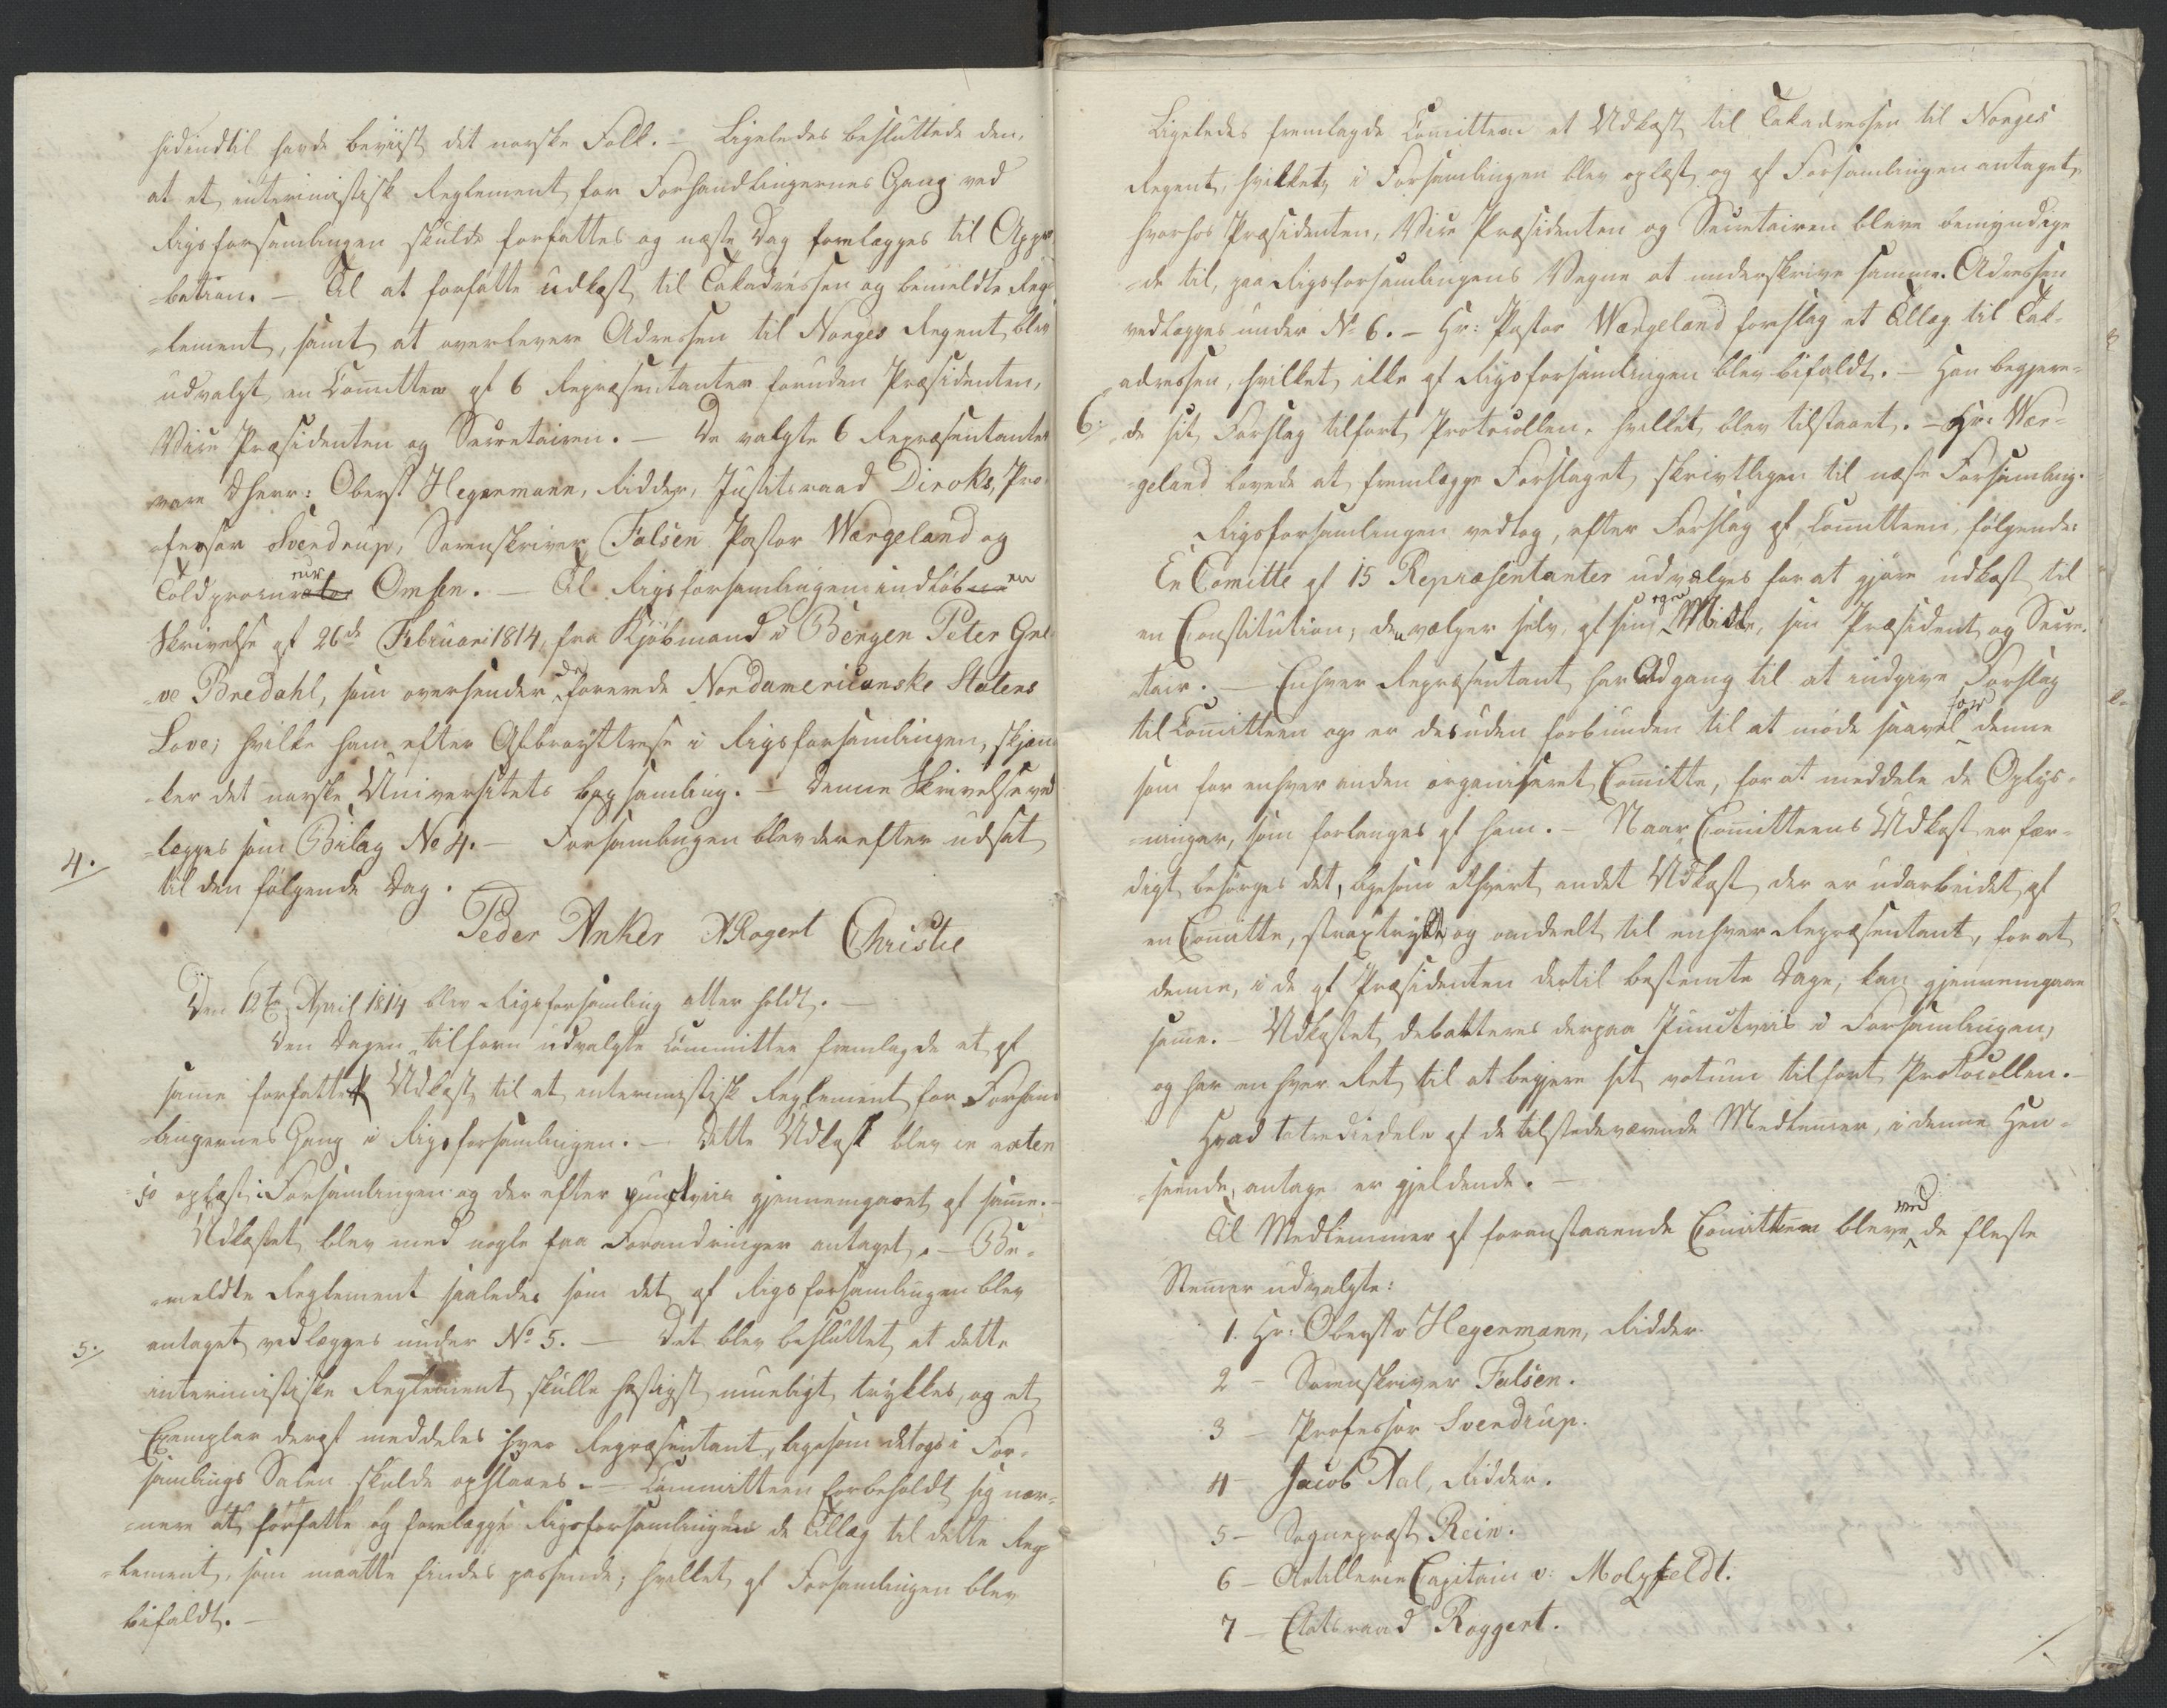 hidindtil havde beviist det norske Folk. – Ligeledes besluttede den,
at et interimistisk Reglement for Forhandlingernes Gang ved
Rigsforsamlingen skulde forfattes og næste Dag forelægges til Appro
=bation. – Til at forfatte udkast til Takadressen og bemeldte Reg
=lement, samt at overlevere Adressen til Norges Regent blev
udvalgt en Comitteen af 6 Repræsentanter foruden Præsidenten,
Vice Præsidenten og Secretairen. – De valgte 6 Repræsentanter
vare DHerr: Oberst Hegermann, Ridder, Justitsraad Diroks, Pro
=fessor Sverdrup, Sorenskriver Falsen Pastor Wergeland og
Toldprocureur Omsen. – Til Rigsforsamlingen indløb en
Skrivelse af 26de Februari 1814, fra Kjøbmand i Bergen Peter Gre
=ve Bredahl, som oversender de forenede Nordamericanske Staters
Love; hvilke han efter Afbenyttelse i Rigsforsamlingen, skjæn
=ker det norske Universitets bogsamling. – Denne Skrivelse ved
4. =lægges som Bilag No 4. – Forsamlingen blev derefter udsat
til den følgende Dag.
Peder Anker ARogert Christie
Den 12te April 1814 blev Rigsforsamling atter holdt. –
Den Dagen tilforn udvalgte Committee fremlagde et af
samme forfattet Udkast til et interimistisk Reglement for Forhand
=lingernes Gang i Rigsforsamlingen. – Dette Udkast blev in exten
=so oplæst i Forsamlingen og derefter punctviis gjennemgaaet af samme. –
Udkastet blev med nogle faa Forandringer antaget. – Be-
=meldte Reglement saaledes som det af Rigsforsamlingen blev
5. antaget vedlægges under No 5. – Det blev besluttet, at dette
interimistiske Reglement skulle hastigst mueligt trykkes, og et
Exemplar deraf meddeles hver Repræsentant, ligesom det ogs i For-
samlings Salen skulde opslaaes. – Committeen forbeholdt sig nær-
=mere at forfatte og forelægge Rigsforsamlingen de Tillæg til dette Reg
=lement, som maatte findes passende; hvilket af Forsamlingen blev
bifaldt. –
Ligeledes fremlagde Comitteen et Udkast til Takadressen til Norges
Regent, hvilket i Forsamlingen blev oplæst og af Forsamlingen antaget,
hvorhos Præsidenten, Vice Præsidenten og Secretairen bleve bemyndige
=de til, paa Rigsforsamlingens Vegne at underskrive samme. Adressen
vedlægges under No 6. – Hr: Pastor Wergeland forslog et Tillæg til Tak-
adressen, hvilket ikke af Rigsforsamlingen blev bifaldt. – Han begjere-
6. =de sit Forslag tilført Protocollen, hvilket blev tilstaaet. – Hr: Wer-
=geland lovede at fremlægge Forslaget skrivtligen til næste Forsamling.
Rigsforsamlingen vedtog, efter Forslag af Comitteen, følgende:
En Comitte af 15 Repræsentanter udvælges for at gjøre udkast til
en Constitution; den vælger selv, af sin egen Midte, sin Præsident og Secre-
tair. – Enhver Repræsentant har Adgang til at indgive Forslag
til Comitteen og er desuden forbunden til at møde saavel for denne
som for enhver anden organiseret Comitte, for at meddele de Oplys-
=ninger, som forlanges af ham. – Naar Comitteens Udkast er fær-
digt besørges det, ligesom ethvert andet Udkast, der er udarbeidet af
en Comitte, strax trykt og omdeelt til enhver Repræsentant, for at
denne, i de af Præsidenten dertil bestemte Dage, kan gjennemgaae
samme. – Udkastet debatteres derpaa Punctviis i Forsamlingen,
og har enhver Ret til at begjere sit votum tilført Protocollen. –
Hvad totrediedele af de tilstedeværende Medlemmer, i denne Hen-
=seende, antage er gjeldende. –
Til Medlemmer af foranstaaende Comitteen bleve ved de fleste
Stemmer udvalgte:
1. Hr: Oberst v Hegermann, Ridder
2 – Sorenskriver Falsen.
3 – Professor Sverdrup.
4 – Jacob Aal, Ridder.
5 – Sognepræst Rein.
6 – Artillerie Capitain v: Motzfeldt.
7 – Etatsraad Roggert.